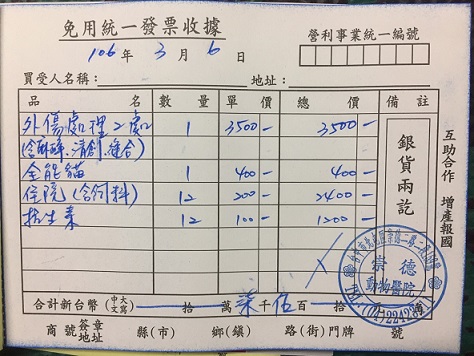 免用統一發票收據
106年 3月 6日
營利事業統一編號
買受人名稱：
地址：
品名 數量 單價 總價 備註
外傷處理2處 1 3500- 3500-
(含麻醉.清創.縫合)
全能貓 1 400- 400-
住院(含飼料) 12 200- 2400-
抗生素 12 100- 1200-
銀貨兩訖
互助合作 增產報國
崇德
動物醫院
合計新台幣(中文大寫) 拾 萬 柒 千 伍 百 拾
商號 簽章 地址 縣(市) 鄉(鎮) 路(街)門牌 號